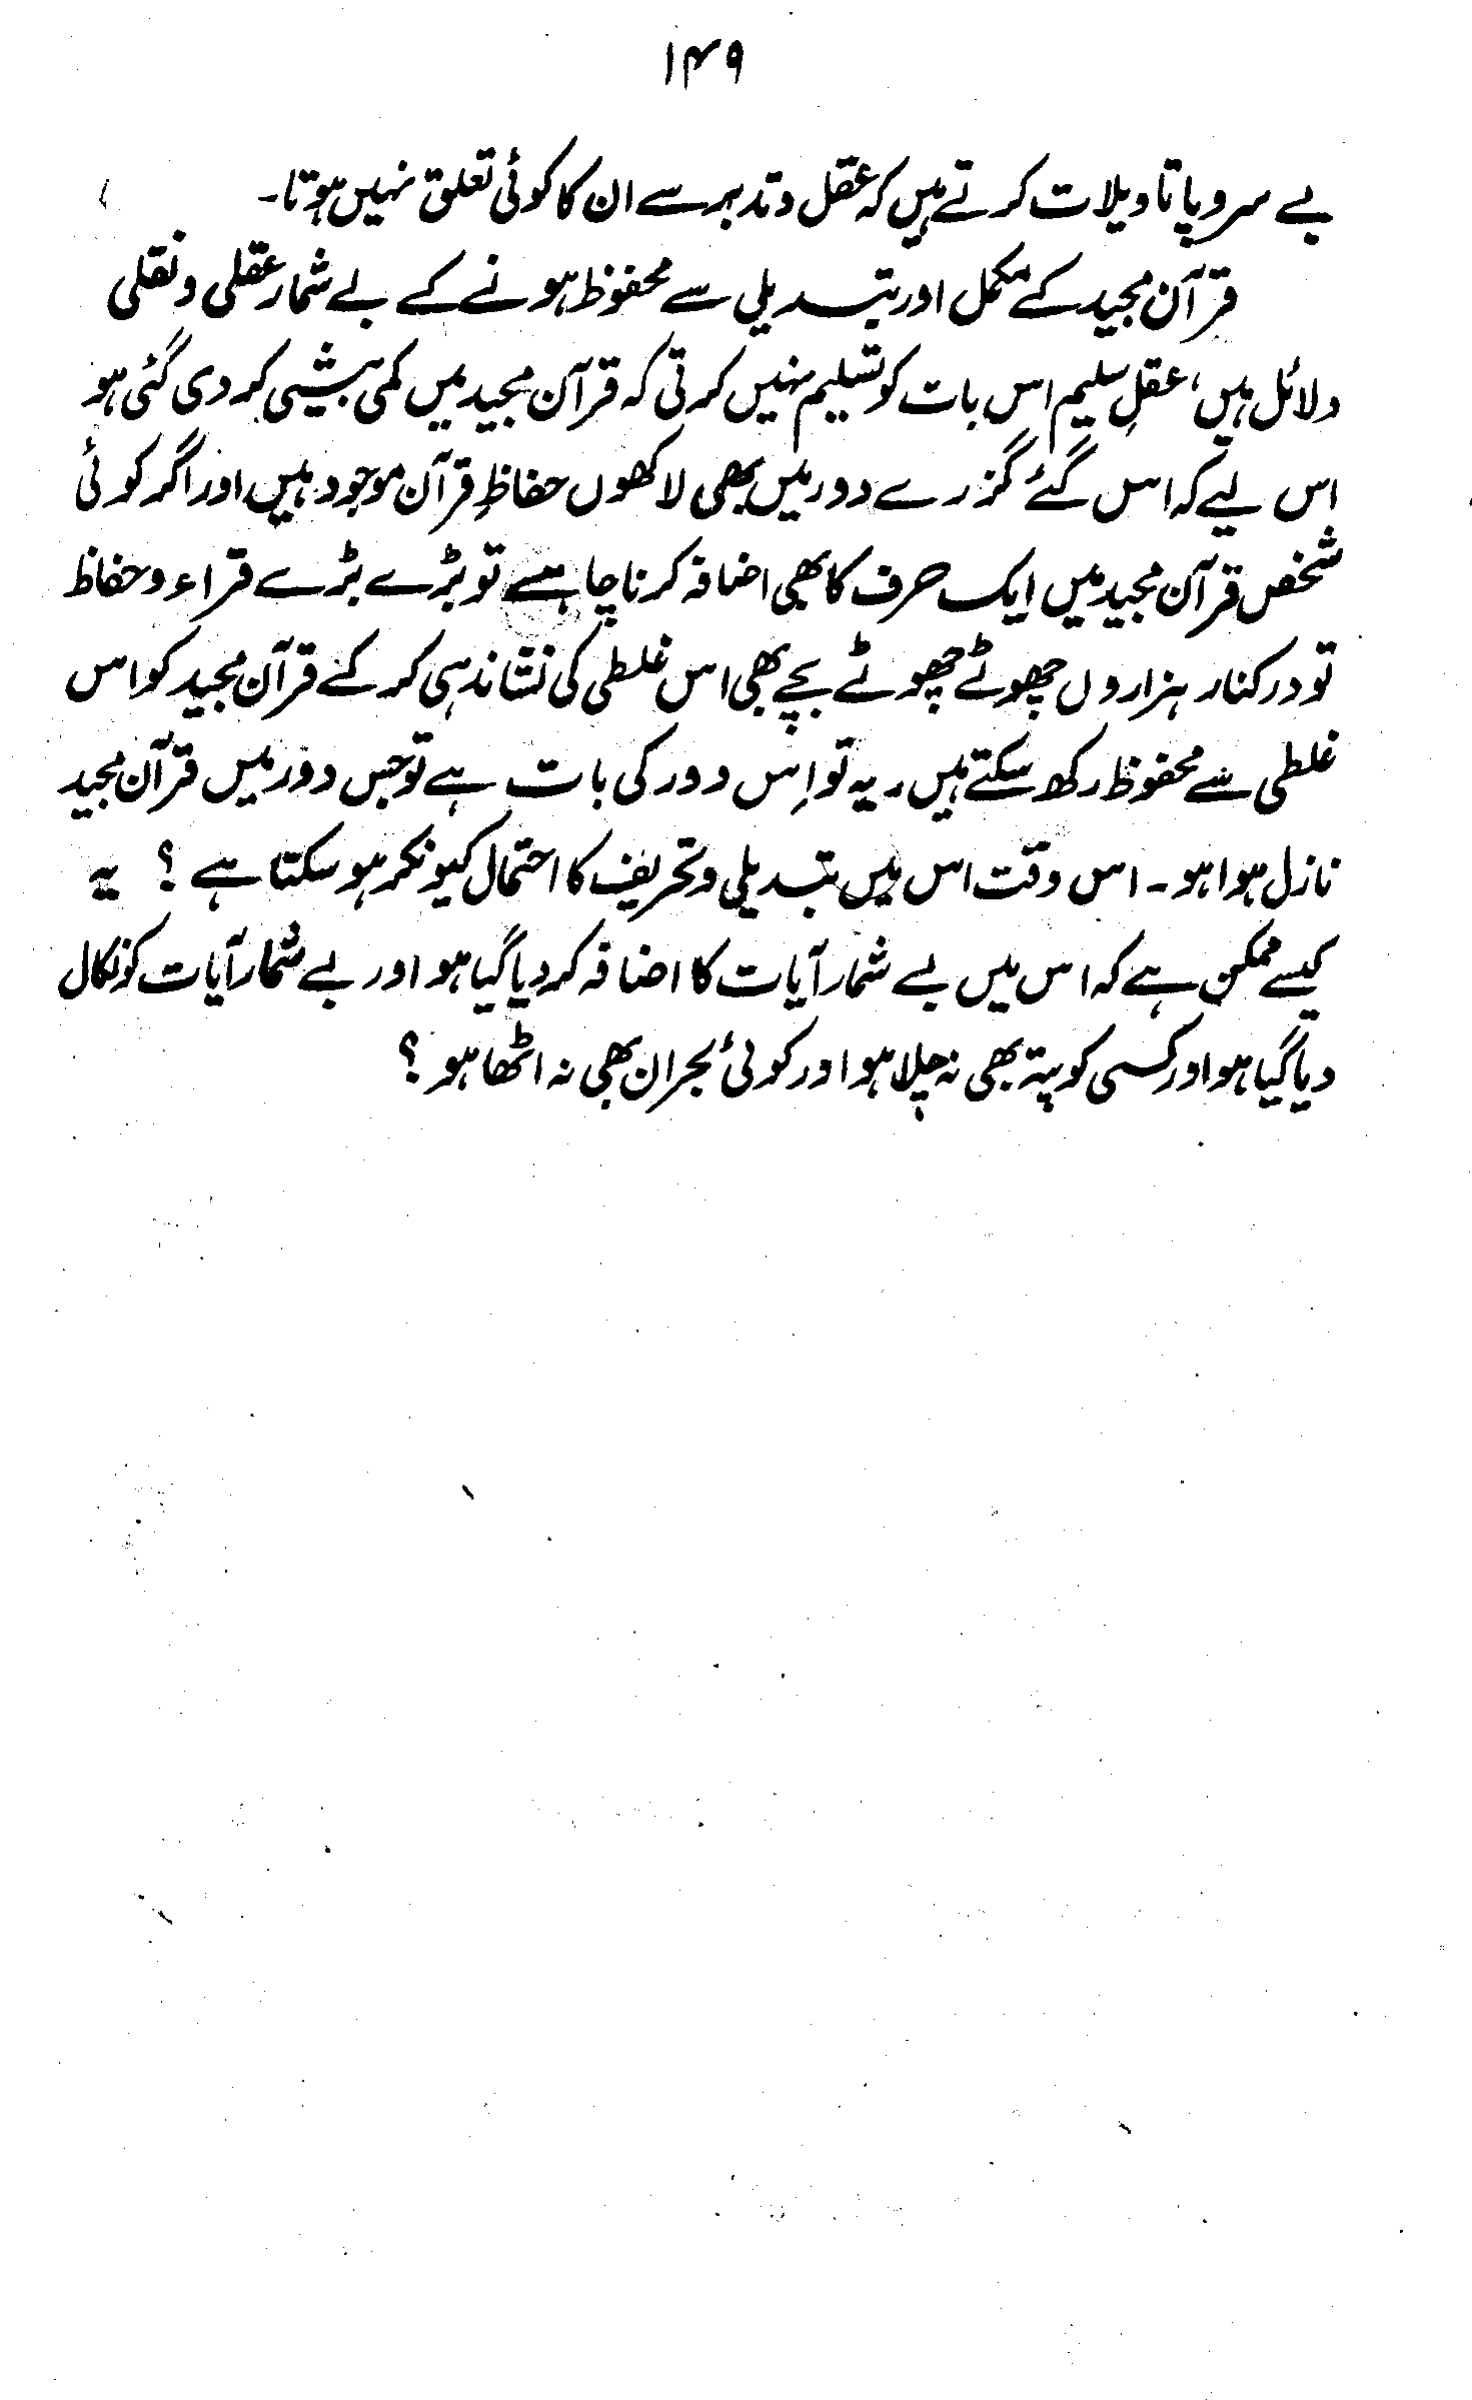 ۱۴۹
بے سروپا تاویلات کرتے ہیں کہ عقل و تدبر سے ان کا کوئی تعلق نہیں ہوتا۔
قرآن مجید کے مکمل اور تبدیلی سے محفوظ ہونے کے بے شمار عقلی و نقلی
دلائل ہیں، عقلِ سلیم اس بات کو تسلیم نہیں کرتی کہ قرآن مجید میں کمی بیشی کر دی گئی ہو
اس لیے کہ اس گئے گزرے دور میں بھی لاکھوں حفاظِ قرآن موجود ہیں اور اگر کوئی
شخص قرآن مجید میں ایک حرف کا بھی اضافہ کرنا چاہے تو بڑے بڑے قراء و حفاظ
تو درکنار ہزاروں چھوٹے چھوٹے بچے بھی اس غلطی کی نشاندہی کر کے قرآن مجید کو اس
غلطی سے محفوظ رکھ سکتے ہیں۔ یہ تو اِس دور کی بات ہے تو جس دور میں قرآن مجید
نازل ہوا ہو۔ اس وقت اس میں تبدیلی و تحریف کا احتمال کیونکر ہو سکتا ہے ؟ یہ
کیسے ممکن ہے کہ اس میں بے شمار آیات کا اضافہ کر دیا گیا ہو اور بے شمار آیات کو نکال
دیا گیا ہو اور کسی کو پتہ بھی نہ چلا ہو اور کوئی بحران بھی نہ اٹھا ہو ؟